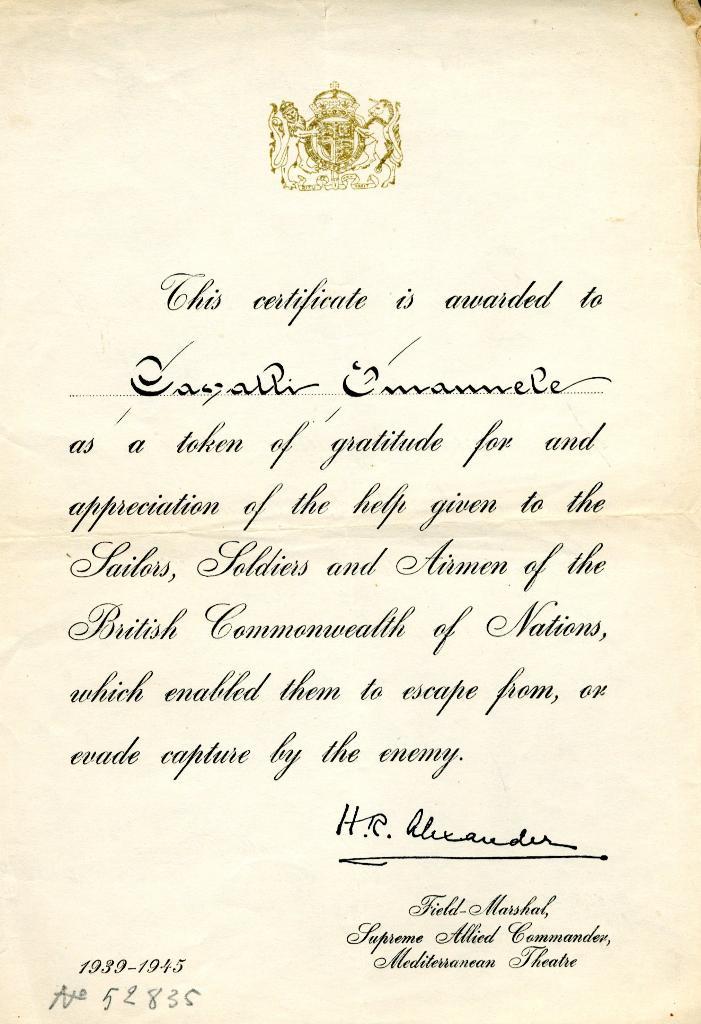 This certificate is awarded to
Cavalli Emanuele
as a token of gratitude for and
appreciation of the help given to the
Sailors, Soldiers and Airmen of the
British Commonwealth of Nations,
which enabled them to escape from, or
evade capture by the enemy.
H.R. Alexander
Field-Marshal,
Supreme Allied Commander,
Mediterranean Theatre
1939-1945
No 52835